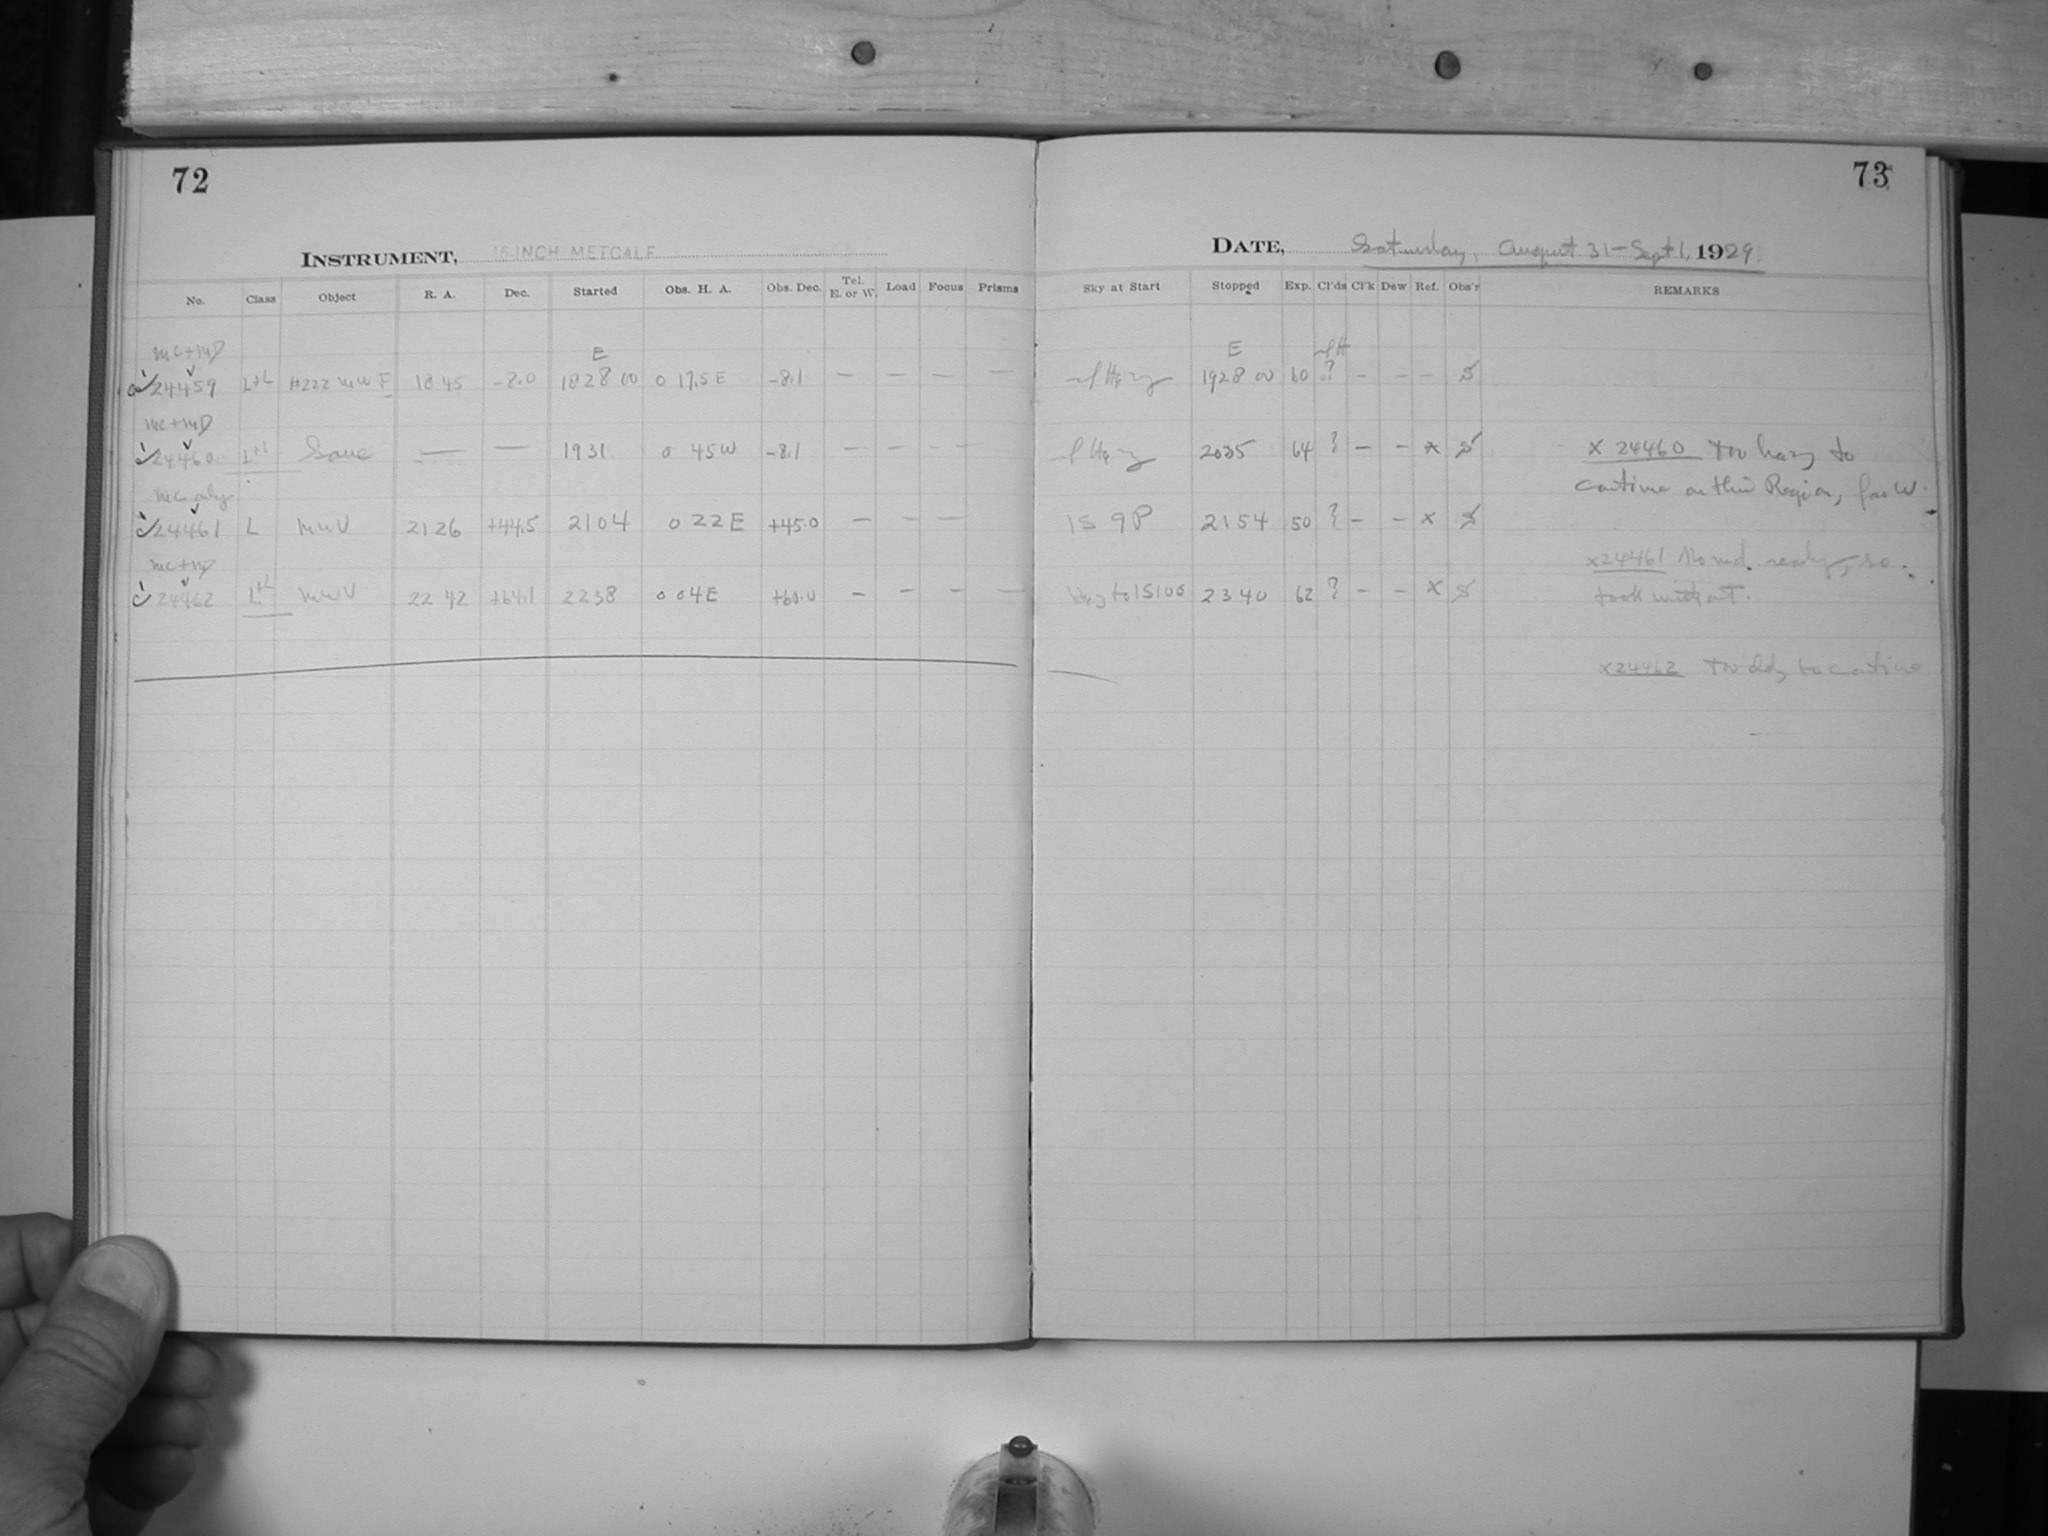 72
INSTRUMENT, 16-INCH METCALF
No. Class Object R. A. Dec. Started Obs. H. A. Obs. Dec. Tel. E. or W. Load Focus Prisms
MC+MD E
24459 L+L H222 MWF 18 45 -8.0 1828 00 0 17.5 E -8.1 — — — —
MC+MD
24460 L+L Same — — 1931 0 45W -8.1 — — — —
MC only
24461 L MWV 21 26 +44.5 2104 0 22 E +45.0 — — —
MC+MD
24462 L+L MWV 22 42 +64.1 2238 0 04E — — — —
73
DATE, Saturday, August 31-Sept 1, 1929.
Sky at Start Stopped Exp. Cl'ds Cl'k Dew Ref. Obs'r REMARKS
E
1928 00 60 ? — — —
64 ? — — x x 24460 Too hazy to
continue on this Region, far W.
1S 9P 2154 50 ? — — x
x24461 No md. ready, so
took without.
2340 62 ? — — x
x24462 to continue